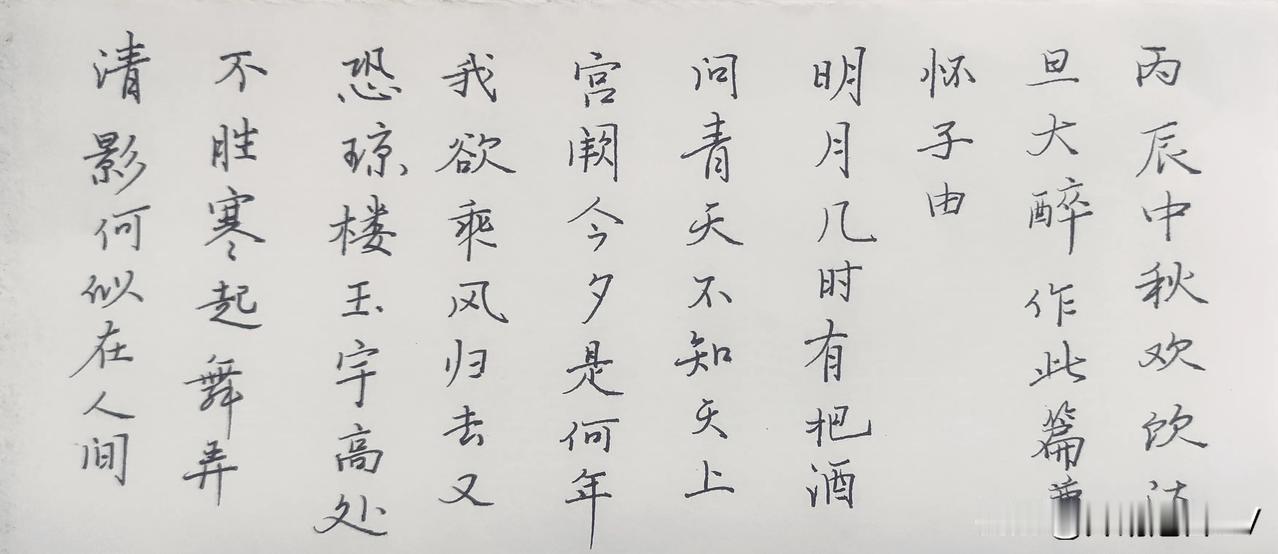 丙辰中秋欢饮达
旦大醉作此篇兼
怀子由
明月几时有把酒
问青天不知天上
宫阙今夕是何年
我欲乘风归去又
恐琼楼玉宇高处
不胜寒起舞弄
清影何似在人间